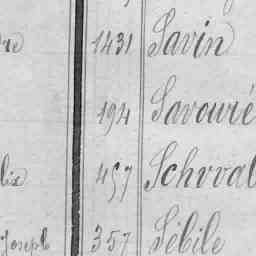 1431 Savin
194 Savouré
457 Schwal
Joseph 357 Sébile